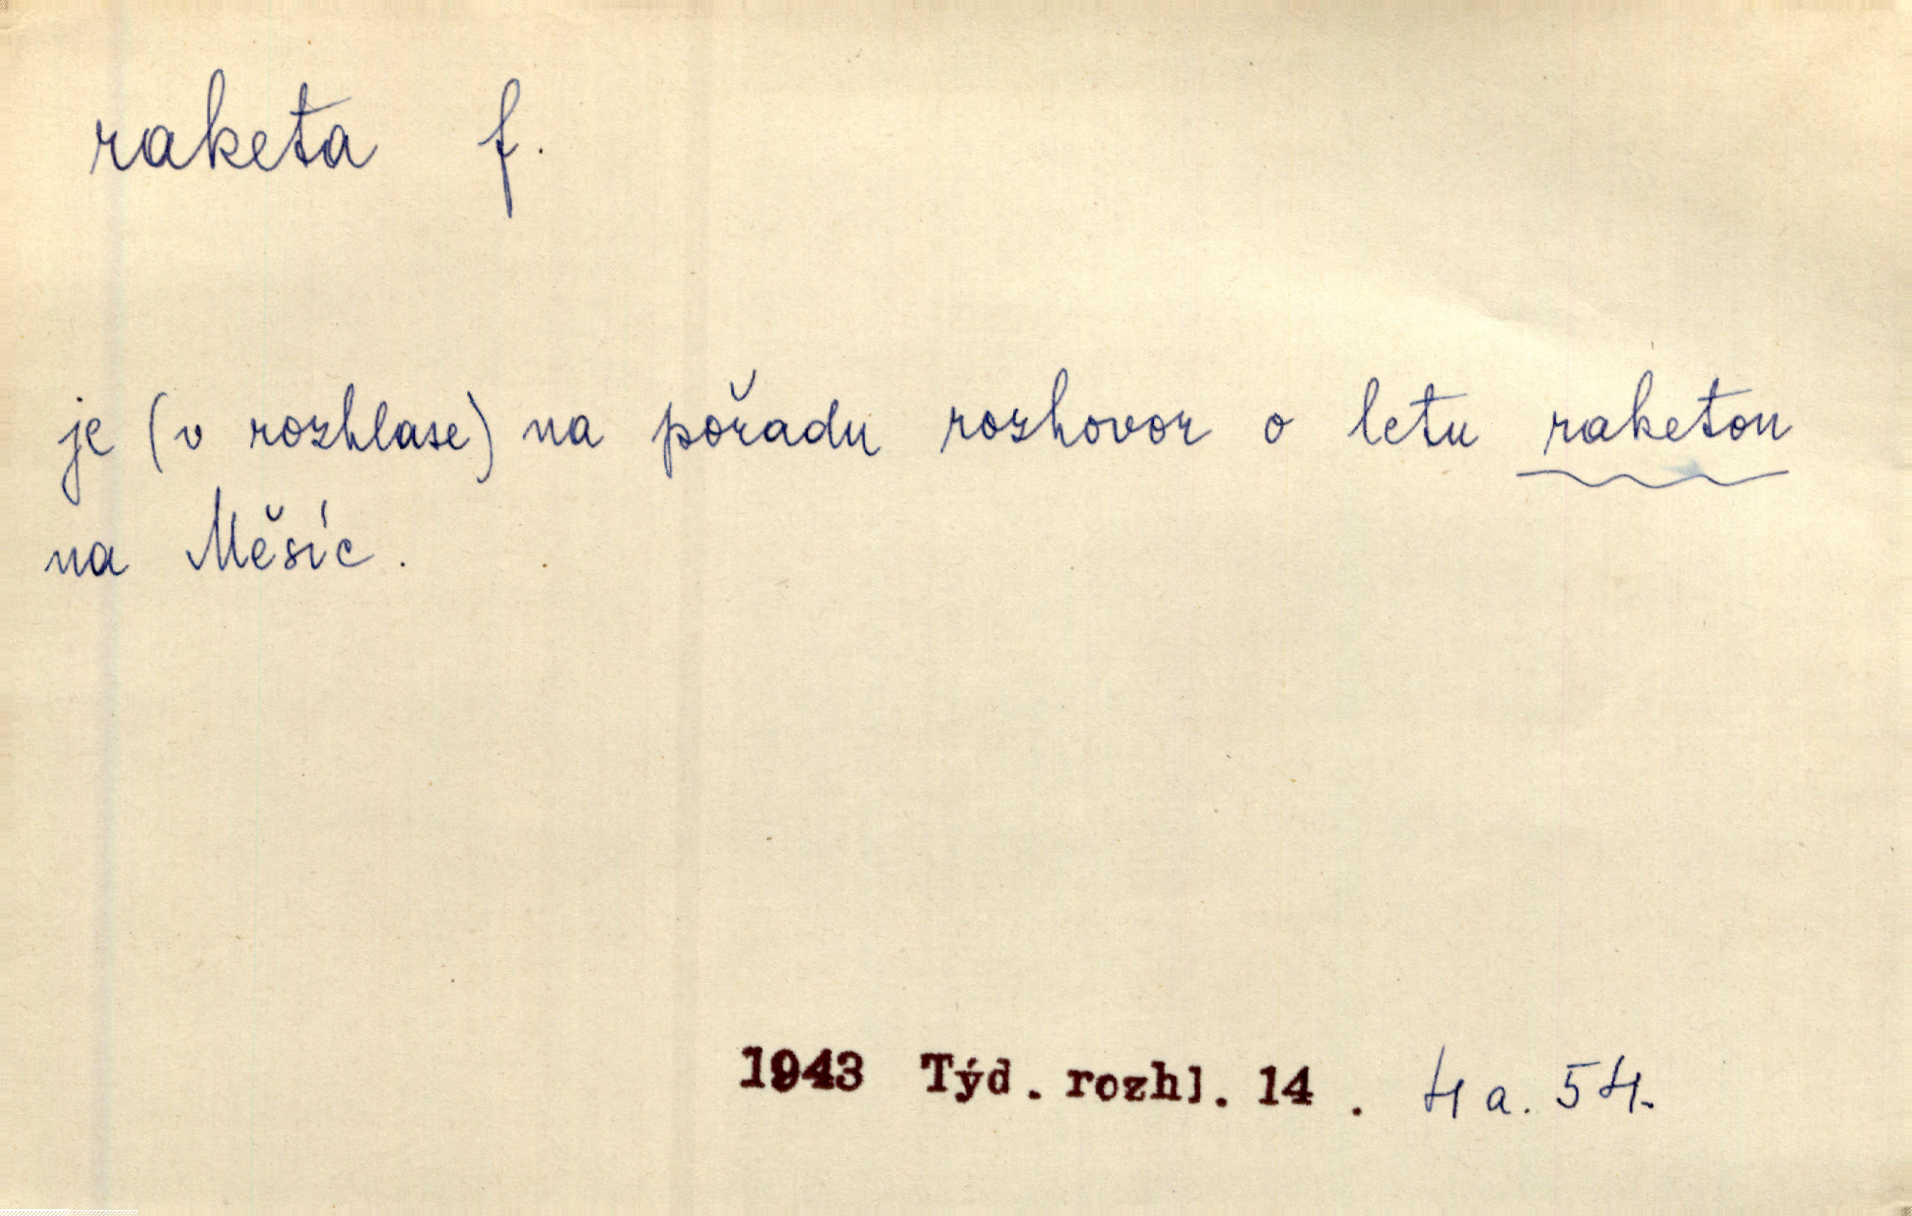 raketa f.
je (v rozhlase) na pořadu rozhovor o letu raketou
na Měsíc.
1943 Týd. rozhl. 14 . 4 a. 54.